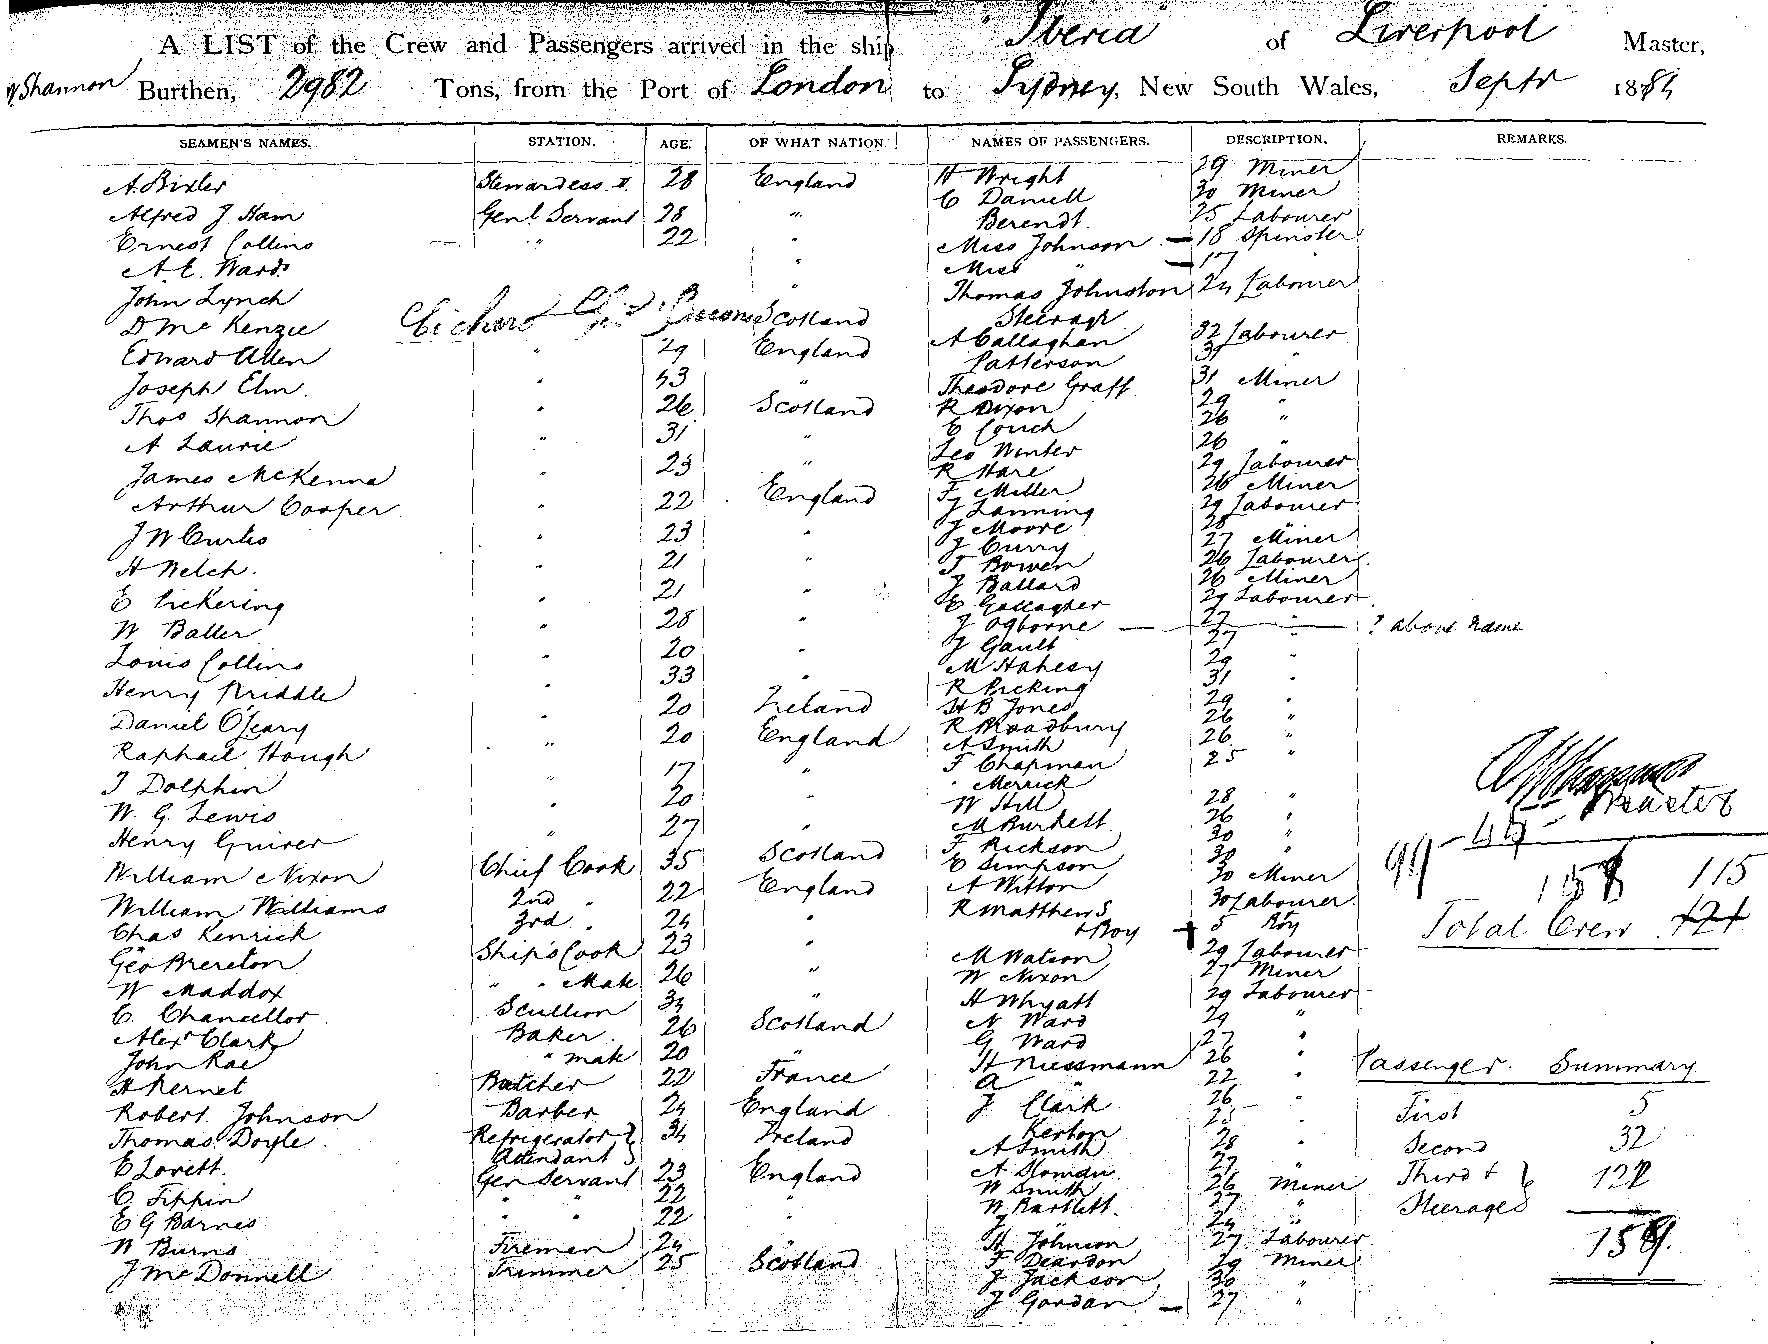 A LIST of the Crew and Passengers arrived in the ship "Iberia" of Liverpool Master,
W Shannon Burthen, 2982 Tons, from the Port of London to Sydney, New South Wales, Septr 1884
SEAMEN'S NAMES. STATION. AGE. OF WHAT NATION. NAMES OF PASSENGERS. DESCRIPTION. REMARKS.
A. Bixter Stewardess 28 England H Wright 29 Miner
C Daniell 30 Miner
Alfred J Ham Genl Servant 28 " Berendt 25 Labourer
Ernest Collins " 22 " Miss Johnson — 18 Spinster
A E. Ward " Miss " — 17
John Lynch " Thomas Johnston 24 Labourer
D McKenzie Scotland Steerage
Edward Allen " 29 England A Callaghan 32 Labourer
Patterson 31 "
Joseph Elm " 43 " Theodore Graff 31 Miner
Thos Shannon " 26 Scotland R Dixon 29 "
A Laurie " 31 " E Couch 26 "
Leo Winter 26 "
James McKenna " 23 " R Hare 29 Labourer
Arthur Cooper " 22 England F Miller 26 Miner
J Lanning 29 Labourer
J W Curtis " 23 " J Moore 28 "
J Curry 27 Miner
H Welch " 21 " T Bowen 26 Labourer
E Pickering " 21 " J Ballard 26 Miner
E Gallagher 29 Labourer
W Baller " 28 " J Ogborne — 27 " ? above name
Louis Collins " 20 " J Gault 27 "
M Hahesy 29 "
Henry Priddle " 33 " R Picking 31 "
Daniel O'Leary " 20 Ireland H B Jones 29 "
R Broadbury 26 "
Raphael Hough " 20 England A Smith 26 "
F Chapman 25 "
J Dolphin " 17 " Merrick
W. G. Lewis " 20 " W Hill 28 "
Henry Guiver " 27 " M Burkett 26 "
F Rickson 30 "
William Nixon Chief Cook 35 Scotland E Simpson 30 "
William Williams 2nd " 22 England A Witton 30 Miner
R Matthews 30 Labourer
Chas Kenrick 3rd " 24 " + Boy 5 Boy
Geo Brereton Ship's Cook 23 " M Watson 29 Labourer
W Maddox " " Mate 26 " W Nixon 27 Miner
C. Chancellor Scullion 34 " H Whyatt 29 Labourer
Alexr Clark Baker 26 Scotland N Ward 29 "
G Ward 27 "
John Rae " mate 20 " H Niessmann 26 "
H Pernet Butcher 22 France A " 22 "
Robert Johnson Barber 24 England J Clark 26 "
Thomas Doyle Refrigerator Attendant 34 Ireland Kerton 25 "
A Smith 28 "
E Lovett Gen Servant 23 England A Sloman 27 "
C. Tippin " " 22 " W Smith 26 Miner
E G Barnes " " 22 " W Bartlett 27 "
W Burns Firemen 24 H Johnson 27 Labourer
J McDonnell Trimmer 25 Scotland F Deardon 29 Miner
J Jackson 30 "
J Gordan — 27 "
Master
99 - 44
158 115
Total Crew 121
Passenger Summary
First 5
Second 32
Third + Steerage 122
159.